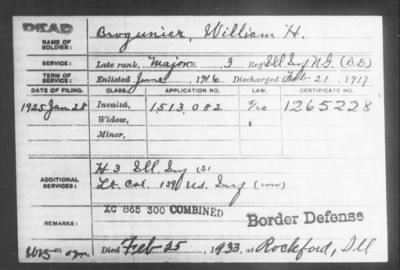 DEAD
NAME OF SOLDIER: Brogunier, William H.
SERVICE: Late rank, Major 3 Reg Ill Inf N.G. (B.D)
TERM OF SERVICE: Enlisted June, 1916 Discharged Feb 21, 1917
DATE OF FILING. CLASS. APPLICATION NO. LAW. CERTIFICATE NO.
1925 Jan 28 Invalid, 1,513,082 1265228
Widow,
Minor,
ADDITIONAL SERVICES: H 3 Ill. Inf (S)
Lt. Col. 129 U.S. Inf (WW)
XC 865 300 COMBINED
REMARKS: Border Defense
Died Feb 25, 1933, at Rockford, Ill